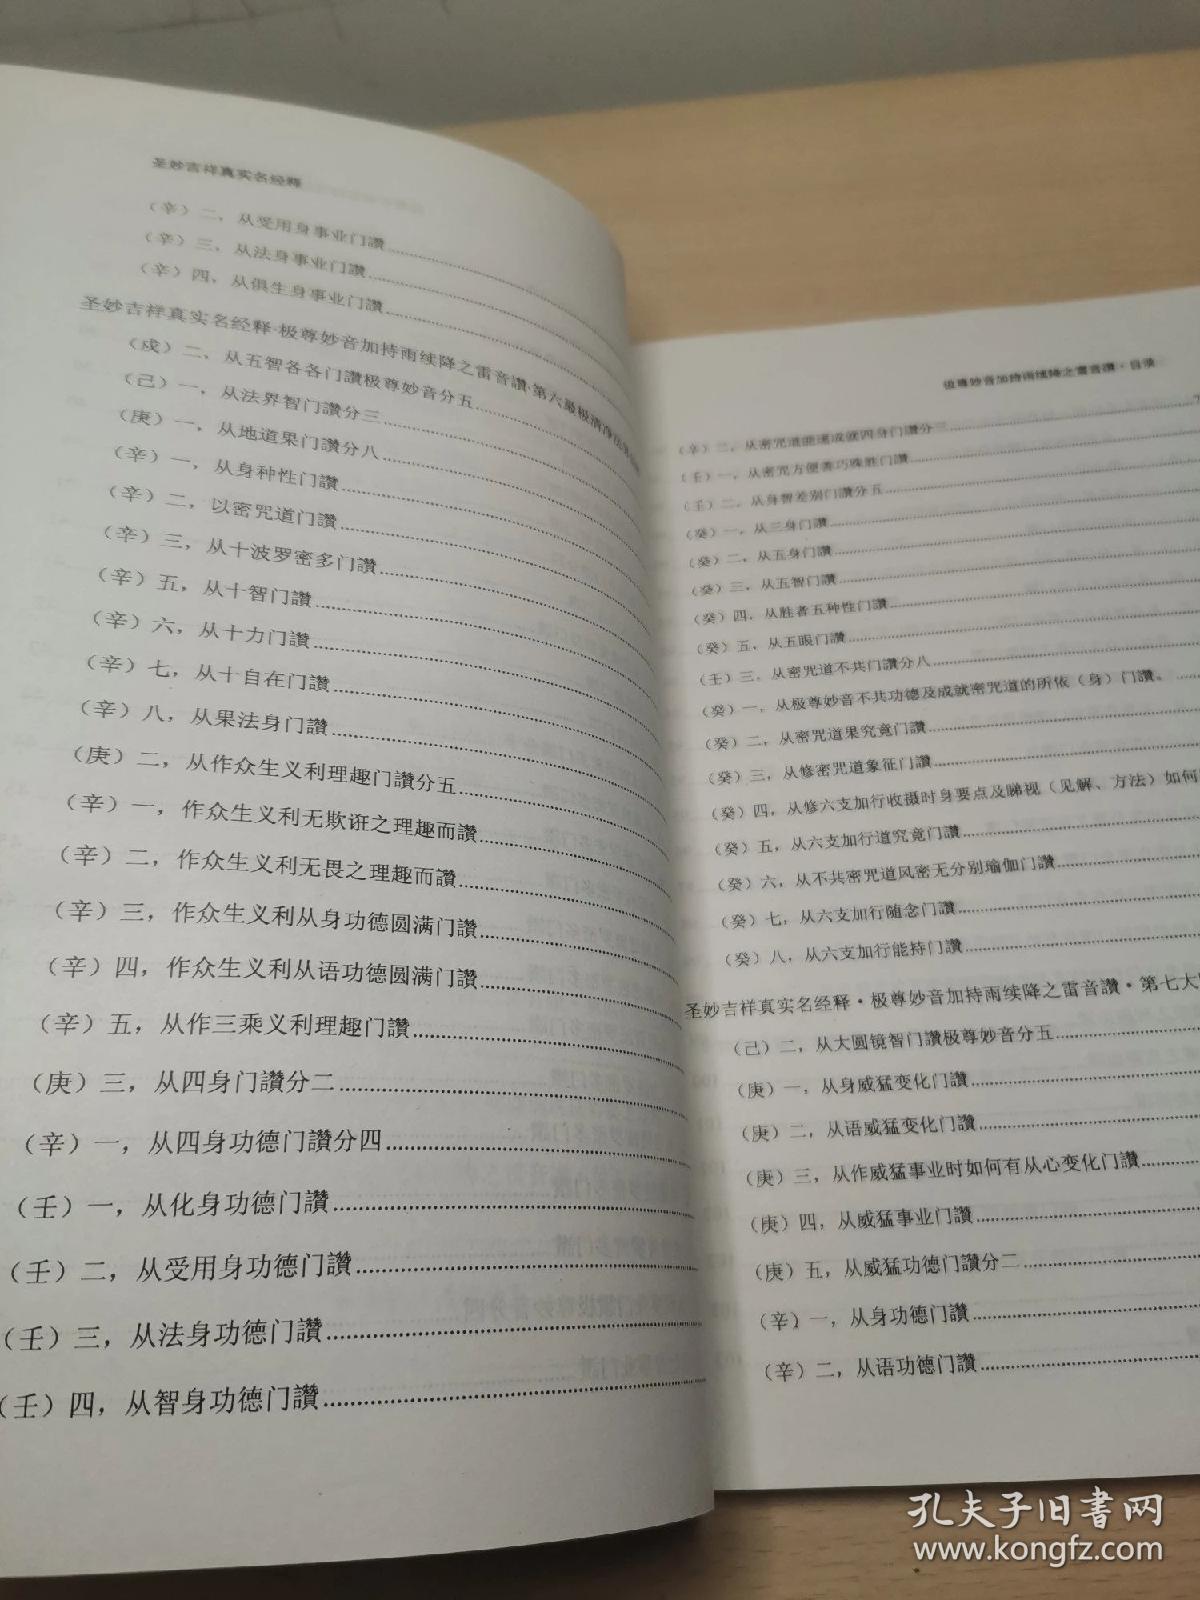 圣妙吉祥真实名经释
（辛）二，从受用身事业门讚
（辛）三，从法身事业门讚
（辛）四，从俱生身事业门讚
圣妙吉祥真实名经释·极尊妙音加持雨续降之雷音讚·第六最极清净法界
（戍）二、从五智各各门讚极尊妙音分五
（己）一，从法界智门讚分三
（庚）一，从地道果门讚分八
（辛）一，从身种性门讚
（辛）二，以密咒道门讚
（辛）三，从十波罗密多门讚
（辛）五，从十智门讚
（辛）六，从十力门讚
（辛）七，从十自在门讚
（辛）八，从果法身门讚
（庚）二，从作众生义利理趣门讚分五
（辛）一，作众生义利无欺诳之理趣而讚
（辛）二，作众生义利无畏之理趣而讚
（辛）三，作众生义利从身功德圆满门讚
（辛）四，作众生义利从语功德圆满门讚
（辛）五，从作三乘义利理趣门讚
（庚）三，从四身门讚分二
（辛）一，从四身功德门讚分四
（壬）一，从化身功德门讚
（壬）二，从受用身功德门讚
（壬）三，从法身功德门讚
（壬）四，从智身功德门讚
极尊妙音加持雨续降之雷音讚·目录
（辛）二，从密咒道能速成彼四身门讚分三
（壬）一，从密咒方便善巧殊胜门讚
（壬）二，从身智差别门讚分五
（癸）一，从三身门讚
（癸）二，从五身门讚
（癸）三，从五智门讚
（癸）四，从胜者五种性门讚
（癸）五，从五眼门讚
（壬）三，从密咒道不共门讚分八
（癸）一，从极尊妙音不共功德及成就密咒道的所依（身）门讚。
（癸）二，从密咒道果究竟门讚
（癸）三，从修密咒道象征门讚
（癸）四，从修六支加行收摄时身要点及睇视（见解、方法）如何
（癸）五，从六支加行道究竟门讚
（癸）六，从不共密咒道风密无分别瑜伽门讚
（癸）七，从六支加行随念门讚
（癸）八，从六支加行能持门讚
圣妙吉祥真实名经释·极尊妙音加持雨续降之雷音讚·第七大
（己）二，从大圆镜智门讚极尊妙音分五
（庚）一，从身威猛变化门讚
（庚）二，从语威猛变化门讚
（庚）三，从作威猛事业时如何有从心变化门讚
（庚）四，从威猛事业门讚
（庚）五，从威猛功德门讚分二
（辛）一，从身功德门讚
（辛）二，从语功德门讚
孔夫子旧书网
www.kongfz.com